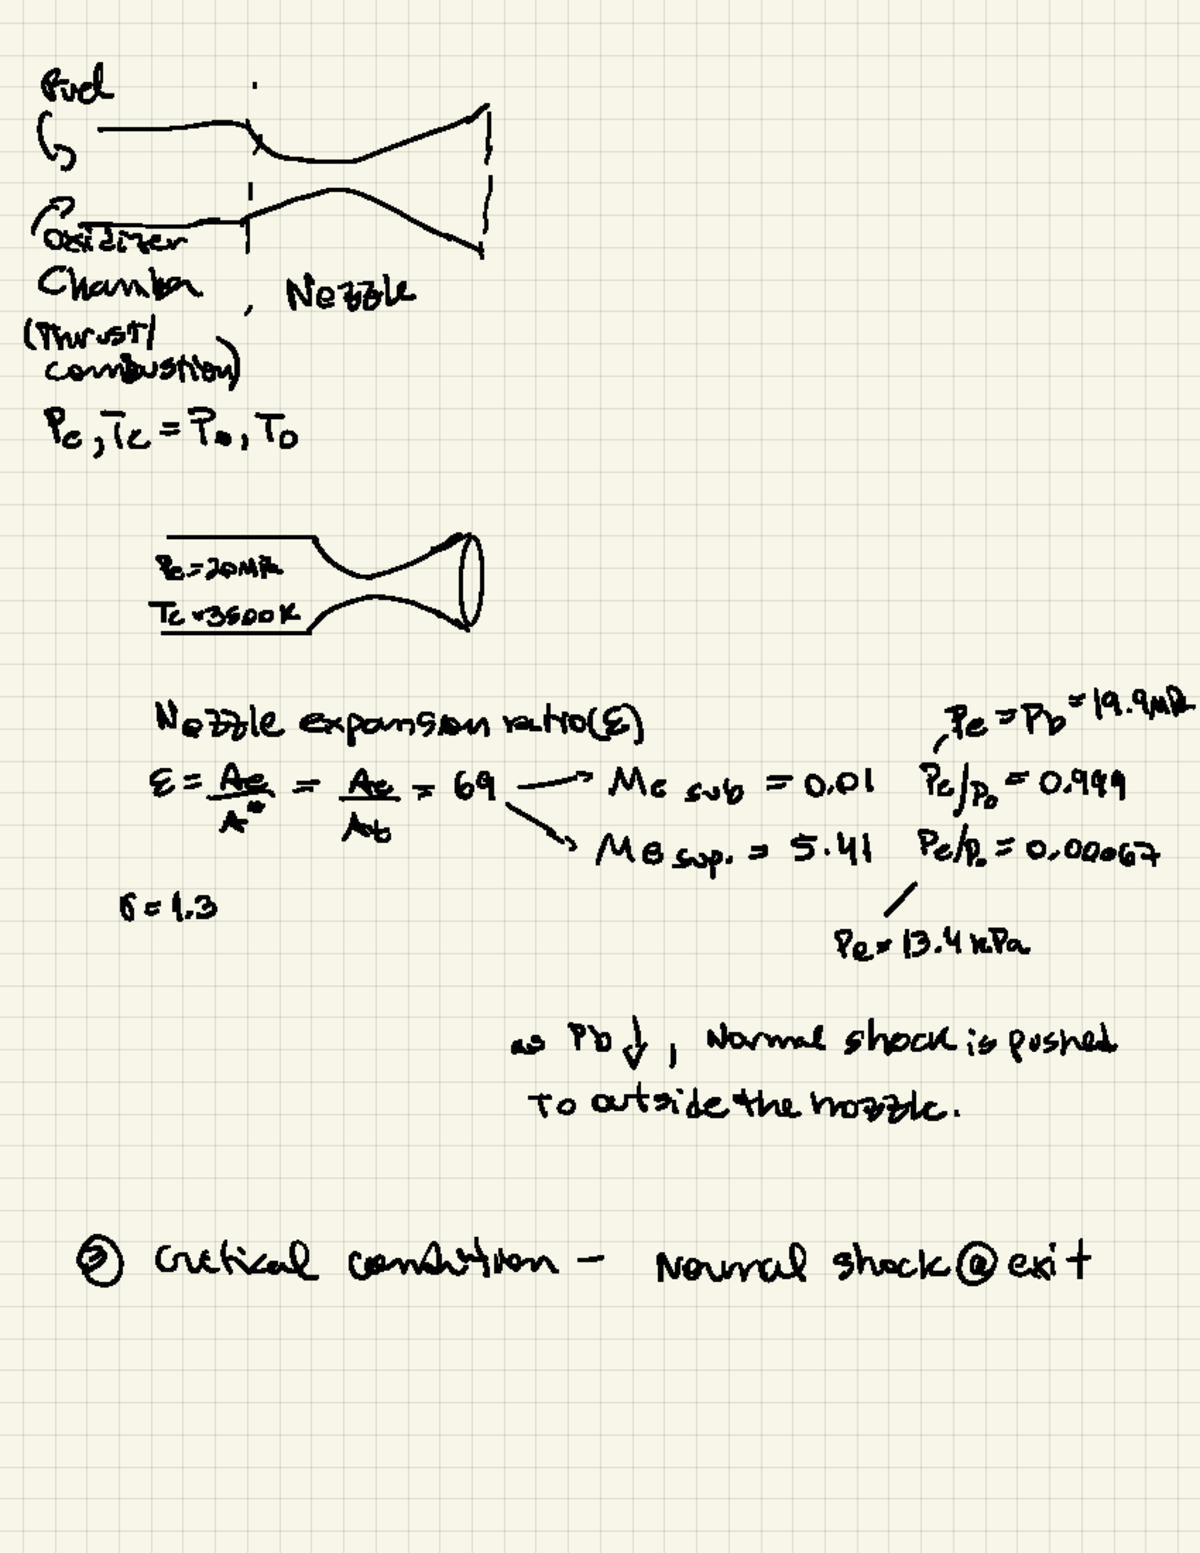 Fuel
Oxidizer
Chamber, Nozzle
(Thrust/
combustion)
Pc, Tc = Po, To
Pc = 20 MPa
Tc = 3500 K
Nozzle expansion ratio (ε)
Pe = Pb = 19.9 MPa
ε = Ae/A* = Ae/At = 69 → Me sub = 0.01 Pe/Po = 0.999
Me sup. = 5.41 Pe/Po = 0.00067
γ = 1.3
Pe = 13.4 kPa
as Pb ↓, Normal shock is pushed
to outside the nozzle.
② Critical condition - Normal shock @ exit